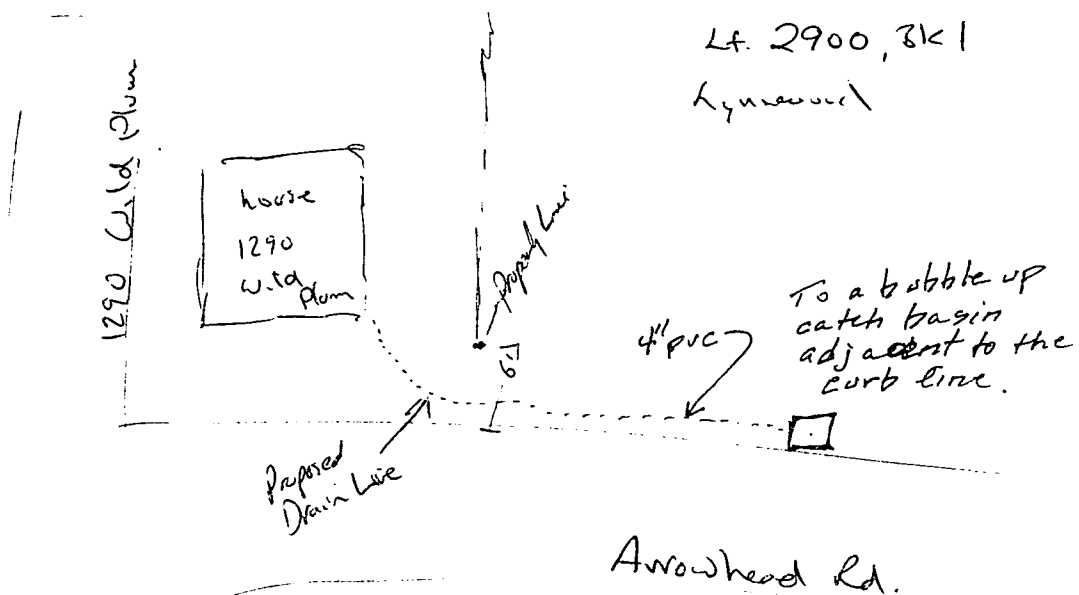 Lt. 2900, BK 1
Lynnwood
1290 Wild Plum
house
1290
Wild
Plum
Property Line
4" PVC
To a bubble up
catch basin
adjacent to the
curb line.
Proposed
Drain Line
Arrowhead Rd.